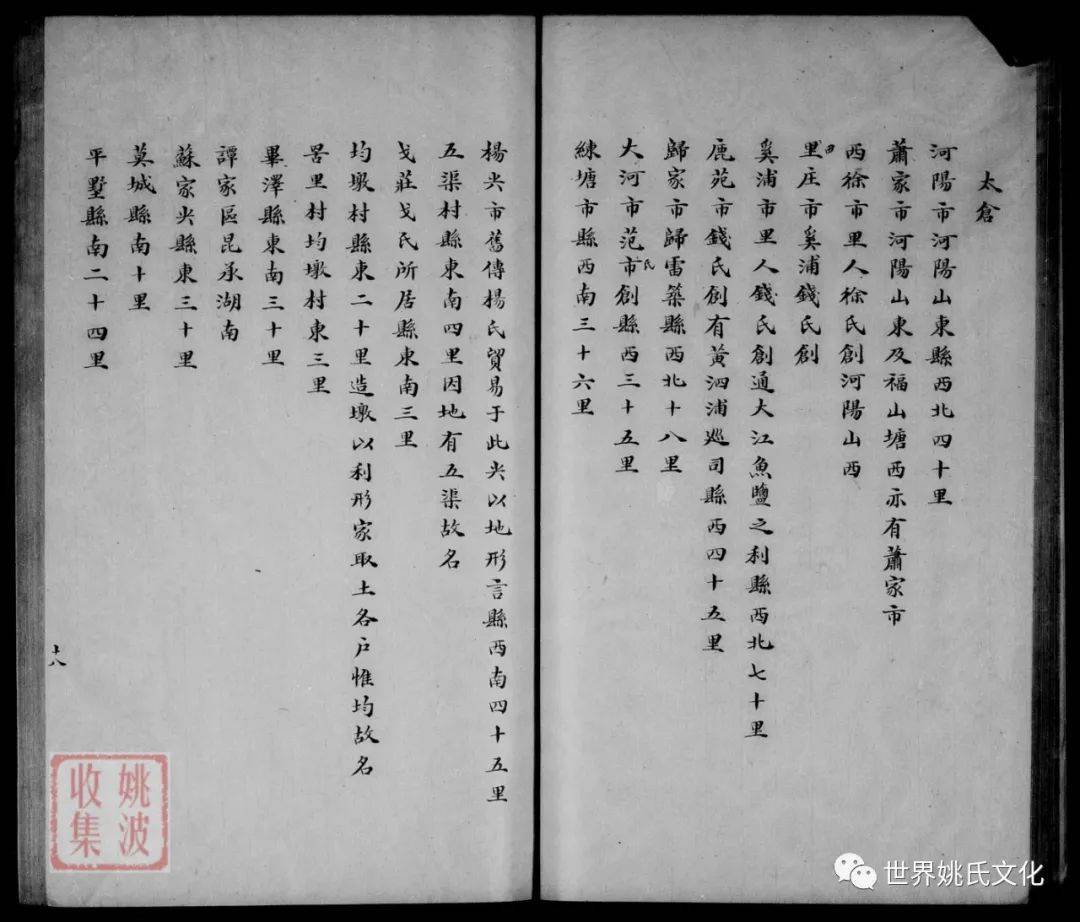 太倉
河陽市河陽山東縣西北四十里
蕭家市河陽山東及福山塘西亦有蕭家市
西徐市里人徐氏創河陽山西
田
里庄市奚浦錢氏創
奚浦市里人錢氏創通大江魚鹽之利縣西北七十里
鹿苑市錢氏創有黃泗浦巡司縣西四十五里
歸家市歸雷築縣西北十八里
大河市范氏市創縣西三十五里
練塘市縣西南三十六里
楊尖市舊傳楊氏貿易于此尖以地形言縣西南四十五里
五渠村縣東南四里因地有五渠故名
戈莊戈氏所居縣東南三里
均墩村縣東二十里造墩以利形家取土各戶惟均故名
罟里村均墩村東三里
畢澤縣東南三十里
譚家區昆承湖南
蘇家尖縣東三十里
莫城縣南十里
平墅縣南二十四里
十八
姚波
收集
世界姚氏文化